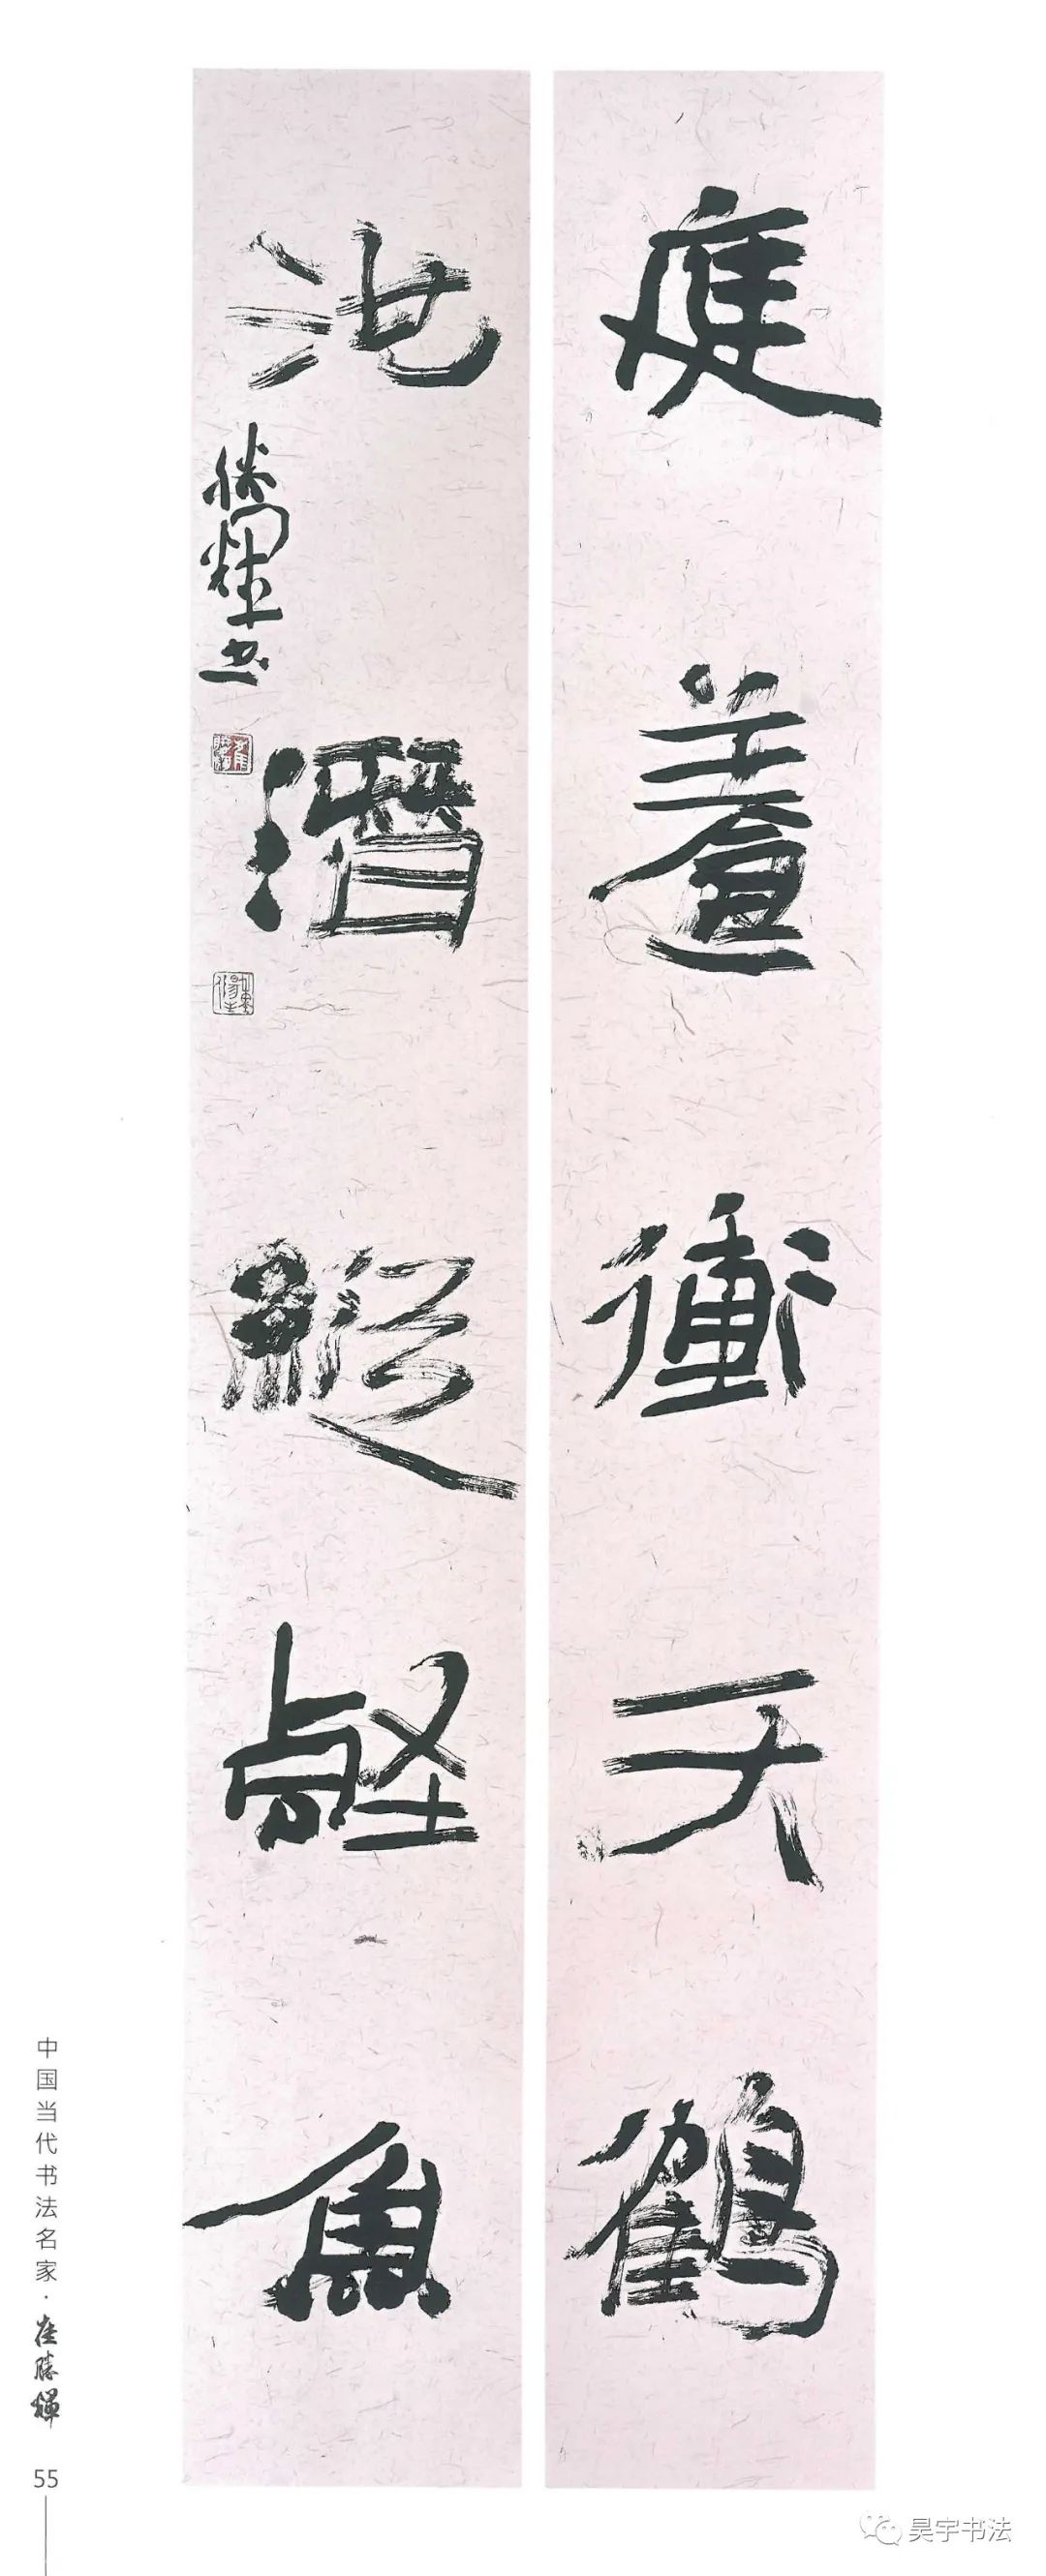 庭養衝天鶴
池潛縱壑魚
勝輝书
中国当代书法名家·崔勝輝
55
昊宇书法